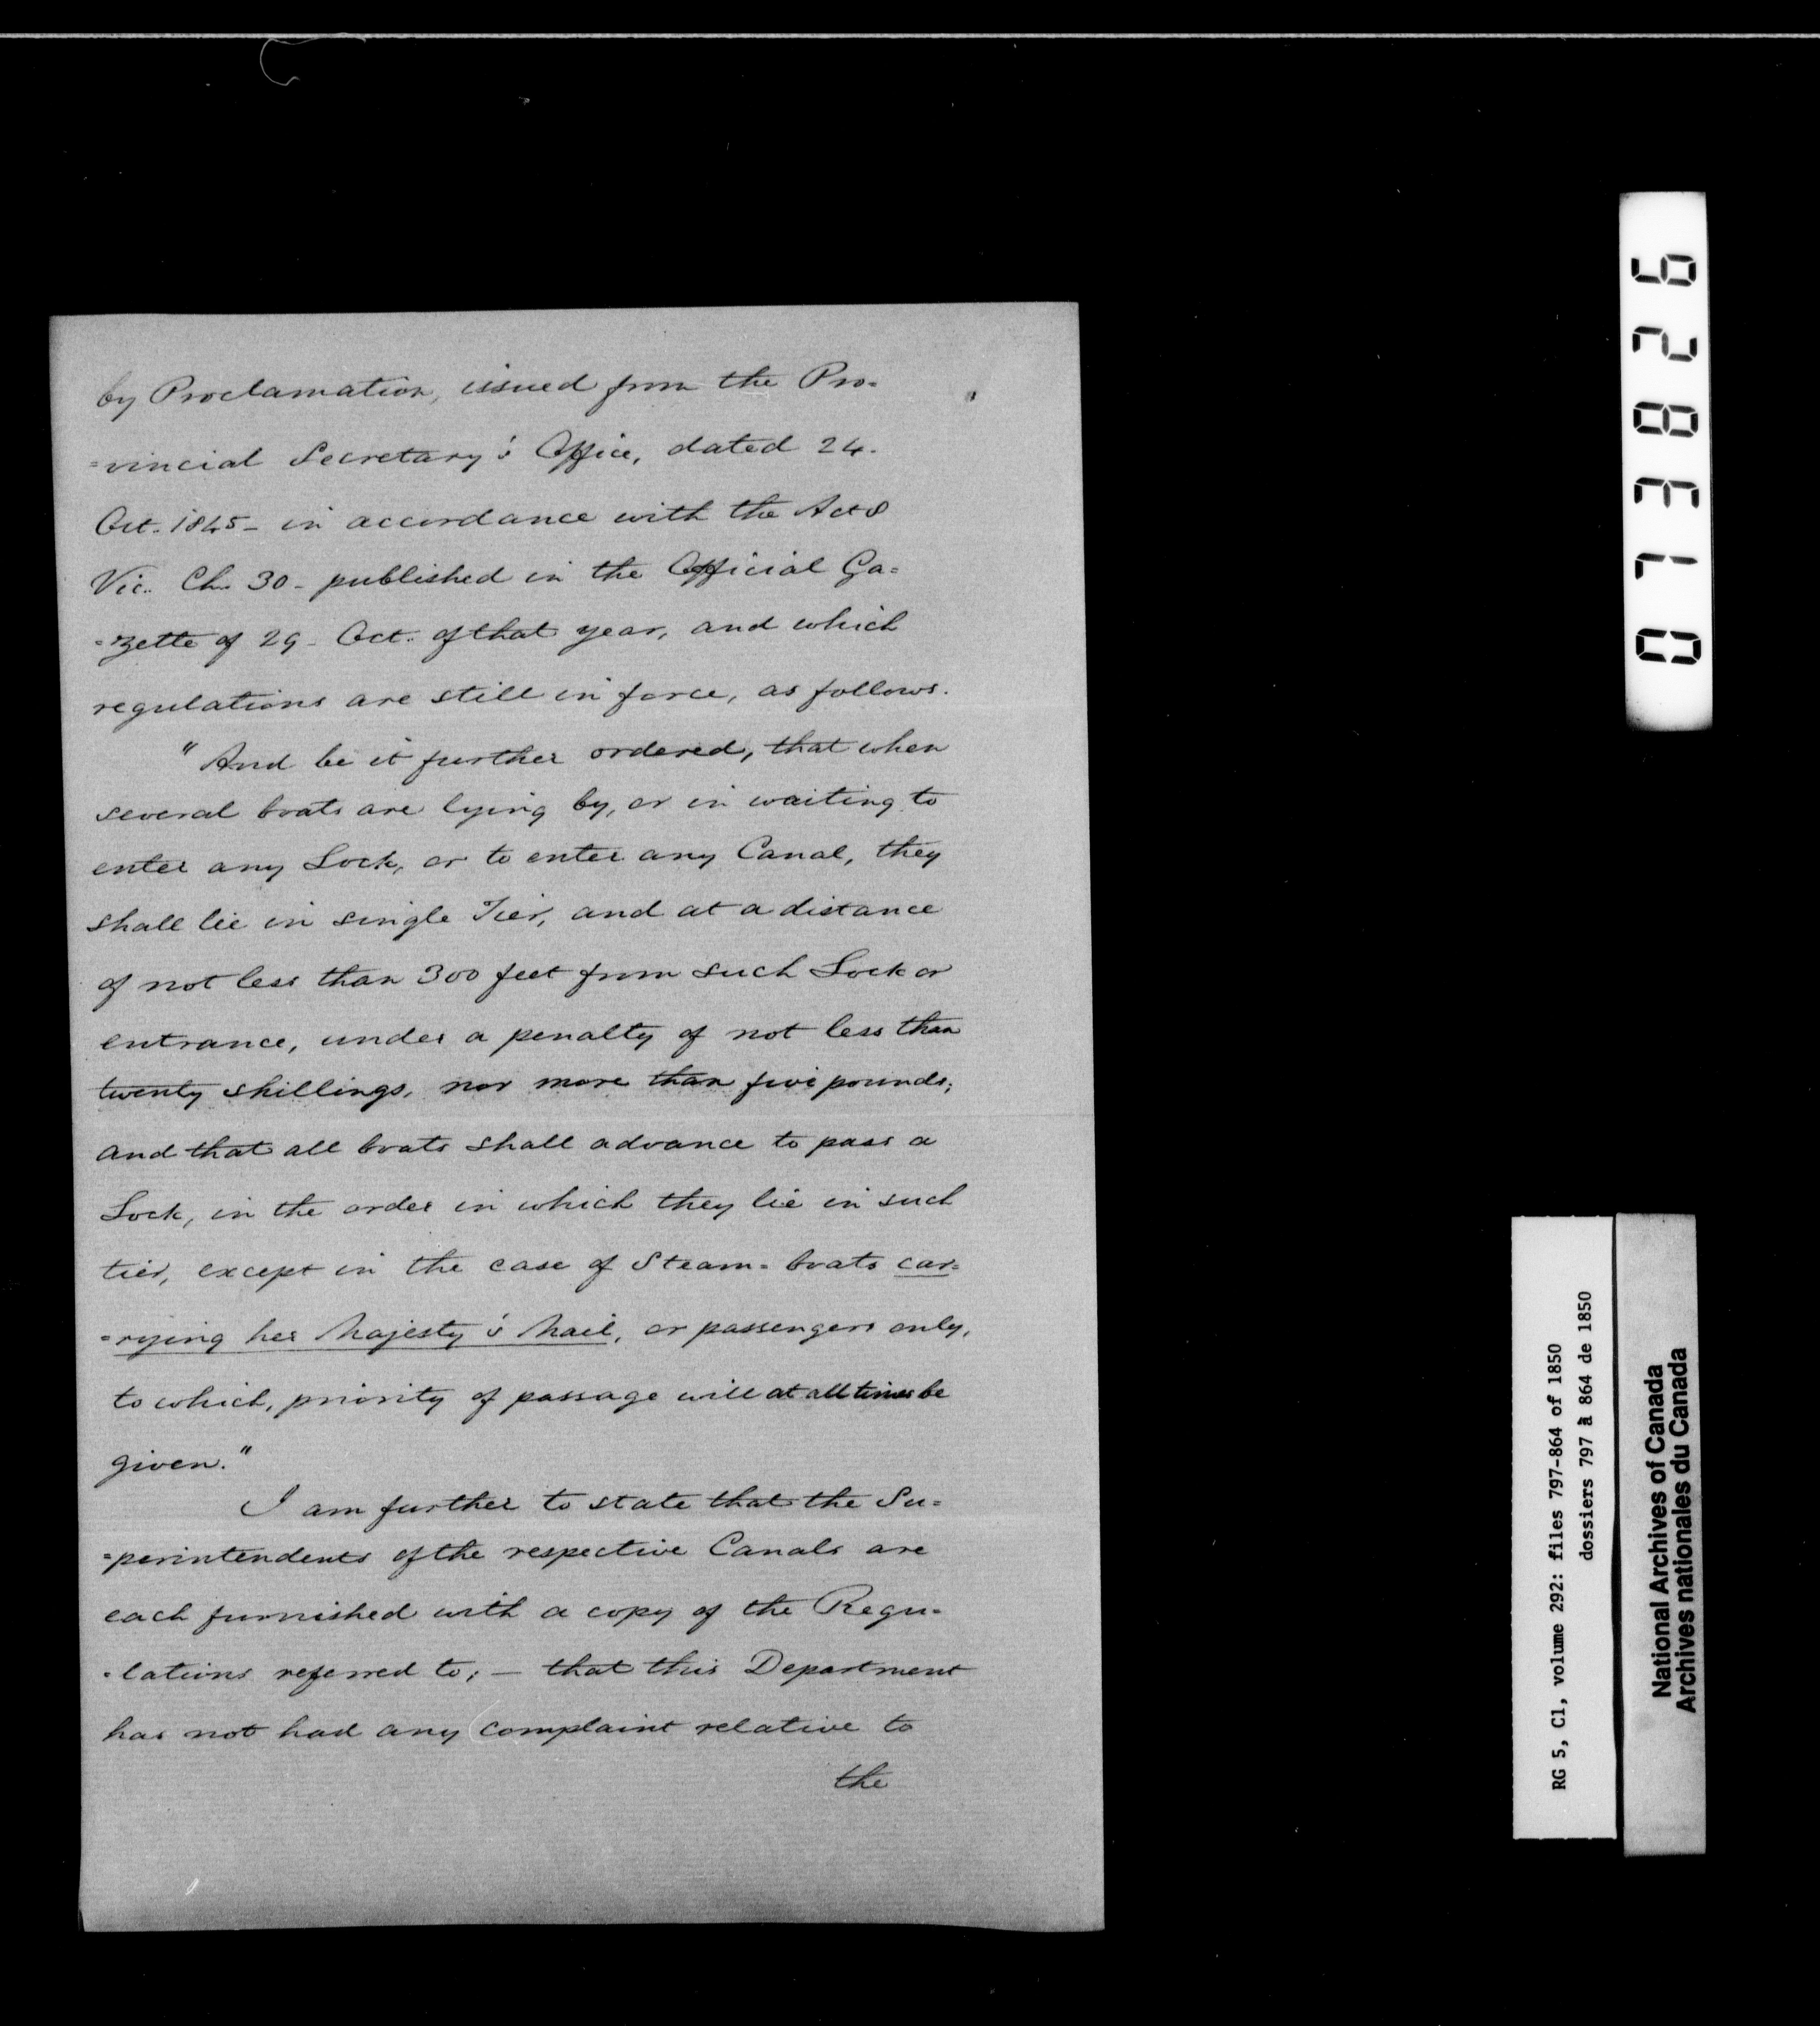 by Proclamation, issued from the Pro-
=vincial Secretary's Office, dated 24.
Oct. 1845 - in accordance with the Act 8
Vic. Ch. 30 - published in the Official Ga=
=zette of 29 - Oct. of that year, and which
regulations are still in force, as follows.
"And be it further ordered, that when
several boats are lying by, or in waiting to
enter any Lock, or to enter any Canal, they
shall lie in single Tier, and at a distance
of not less than 300 feet from such Lock or
entrance, under a penalty of not less than
twenty shillings, nor more than five pounds;
and that all boats shall advance to pass a
Lock, in the order in which they lie in such
tier, except in the case of Steam=boats car=
=rying her Majesty's Mail, or passengers only,
to which, priority of passage will at all times be
given."
I am further to state that the Su=
=perintendents of the respective Canals are
each furnished with a copy of the Regu-
-lations referred to; — that this Department
has not had any complaint relative to
the
0713826
RG 5, C1, volume 292: files 797-864 of 1850
dossiers 797 à 864 de 1850
National Archives of Canada
Archives nationales du Canada